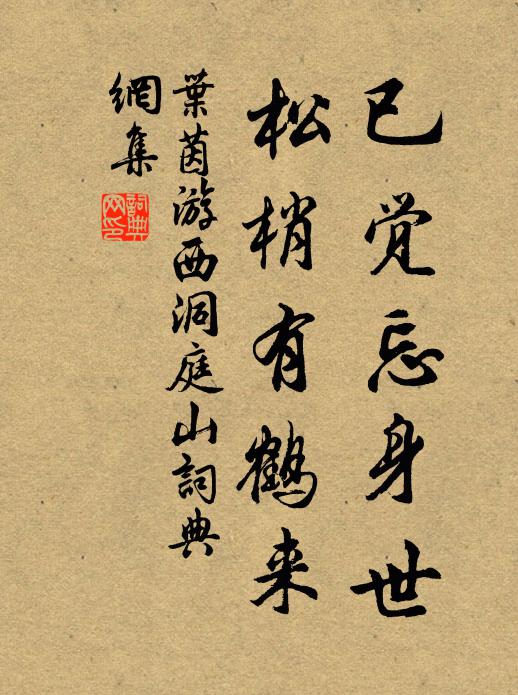 已觉忘身世
松梢有鹤来
葉茵游西洞庭山詞典
網集
詞典网印